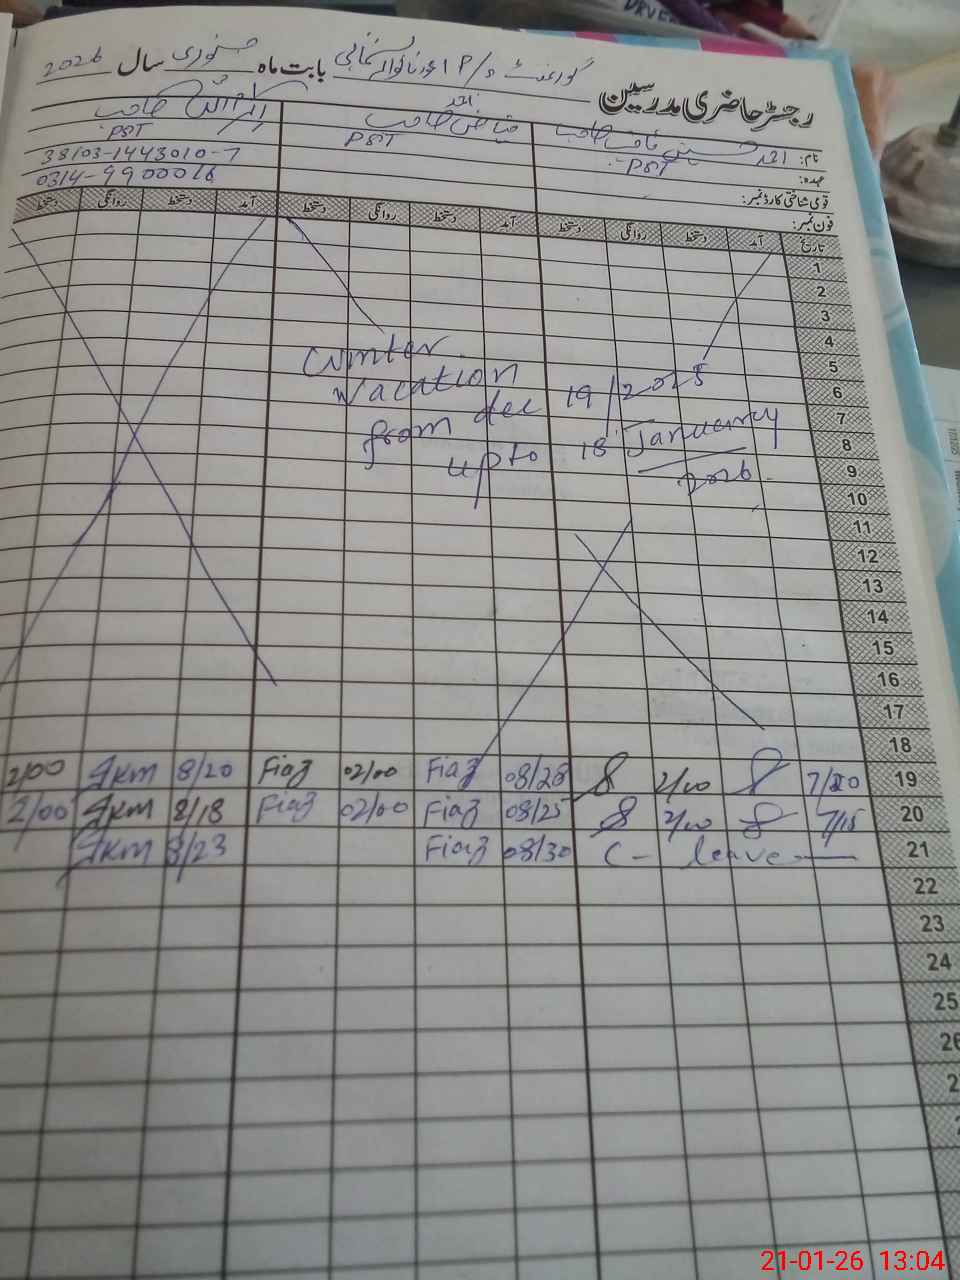 رجسٹر حاضری مدرسین گورنمنٹ P/S بابت ماہ جنوری سال 2026
نام: احمد حسین صاحب فیاض احمد صاحب اکرام اللہ صاحب
عہدہ: PST PST PST
قومی شناختی کارڈ نمبر: 38103-1443010-7
فون نمبر: 0314-9900016
تاریخ آمد دستخط روانگی دستخط آمد دستخط روانگی دستخط آمد دستخط روانگی دستخط
1
2
3
4
Winter
5
Vacation
6
from dec 19/2025
7
upto 18 January
8
2026
9
10
11
12
13
14
15
16
17
18
19 7/20 2/00 08/28 Fiaz 02/00 Fiaz 8/20 2/00
20 7/15 2/00 08/25 Fiaz 02/00 Fiaz 8/18 2/00
21 C- leave 08/30 Fiaz 8/23
22
23
24
25
26
21-01-26 13:04